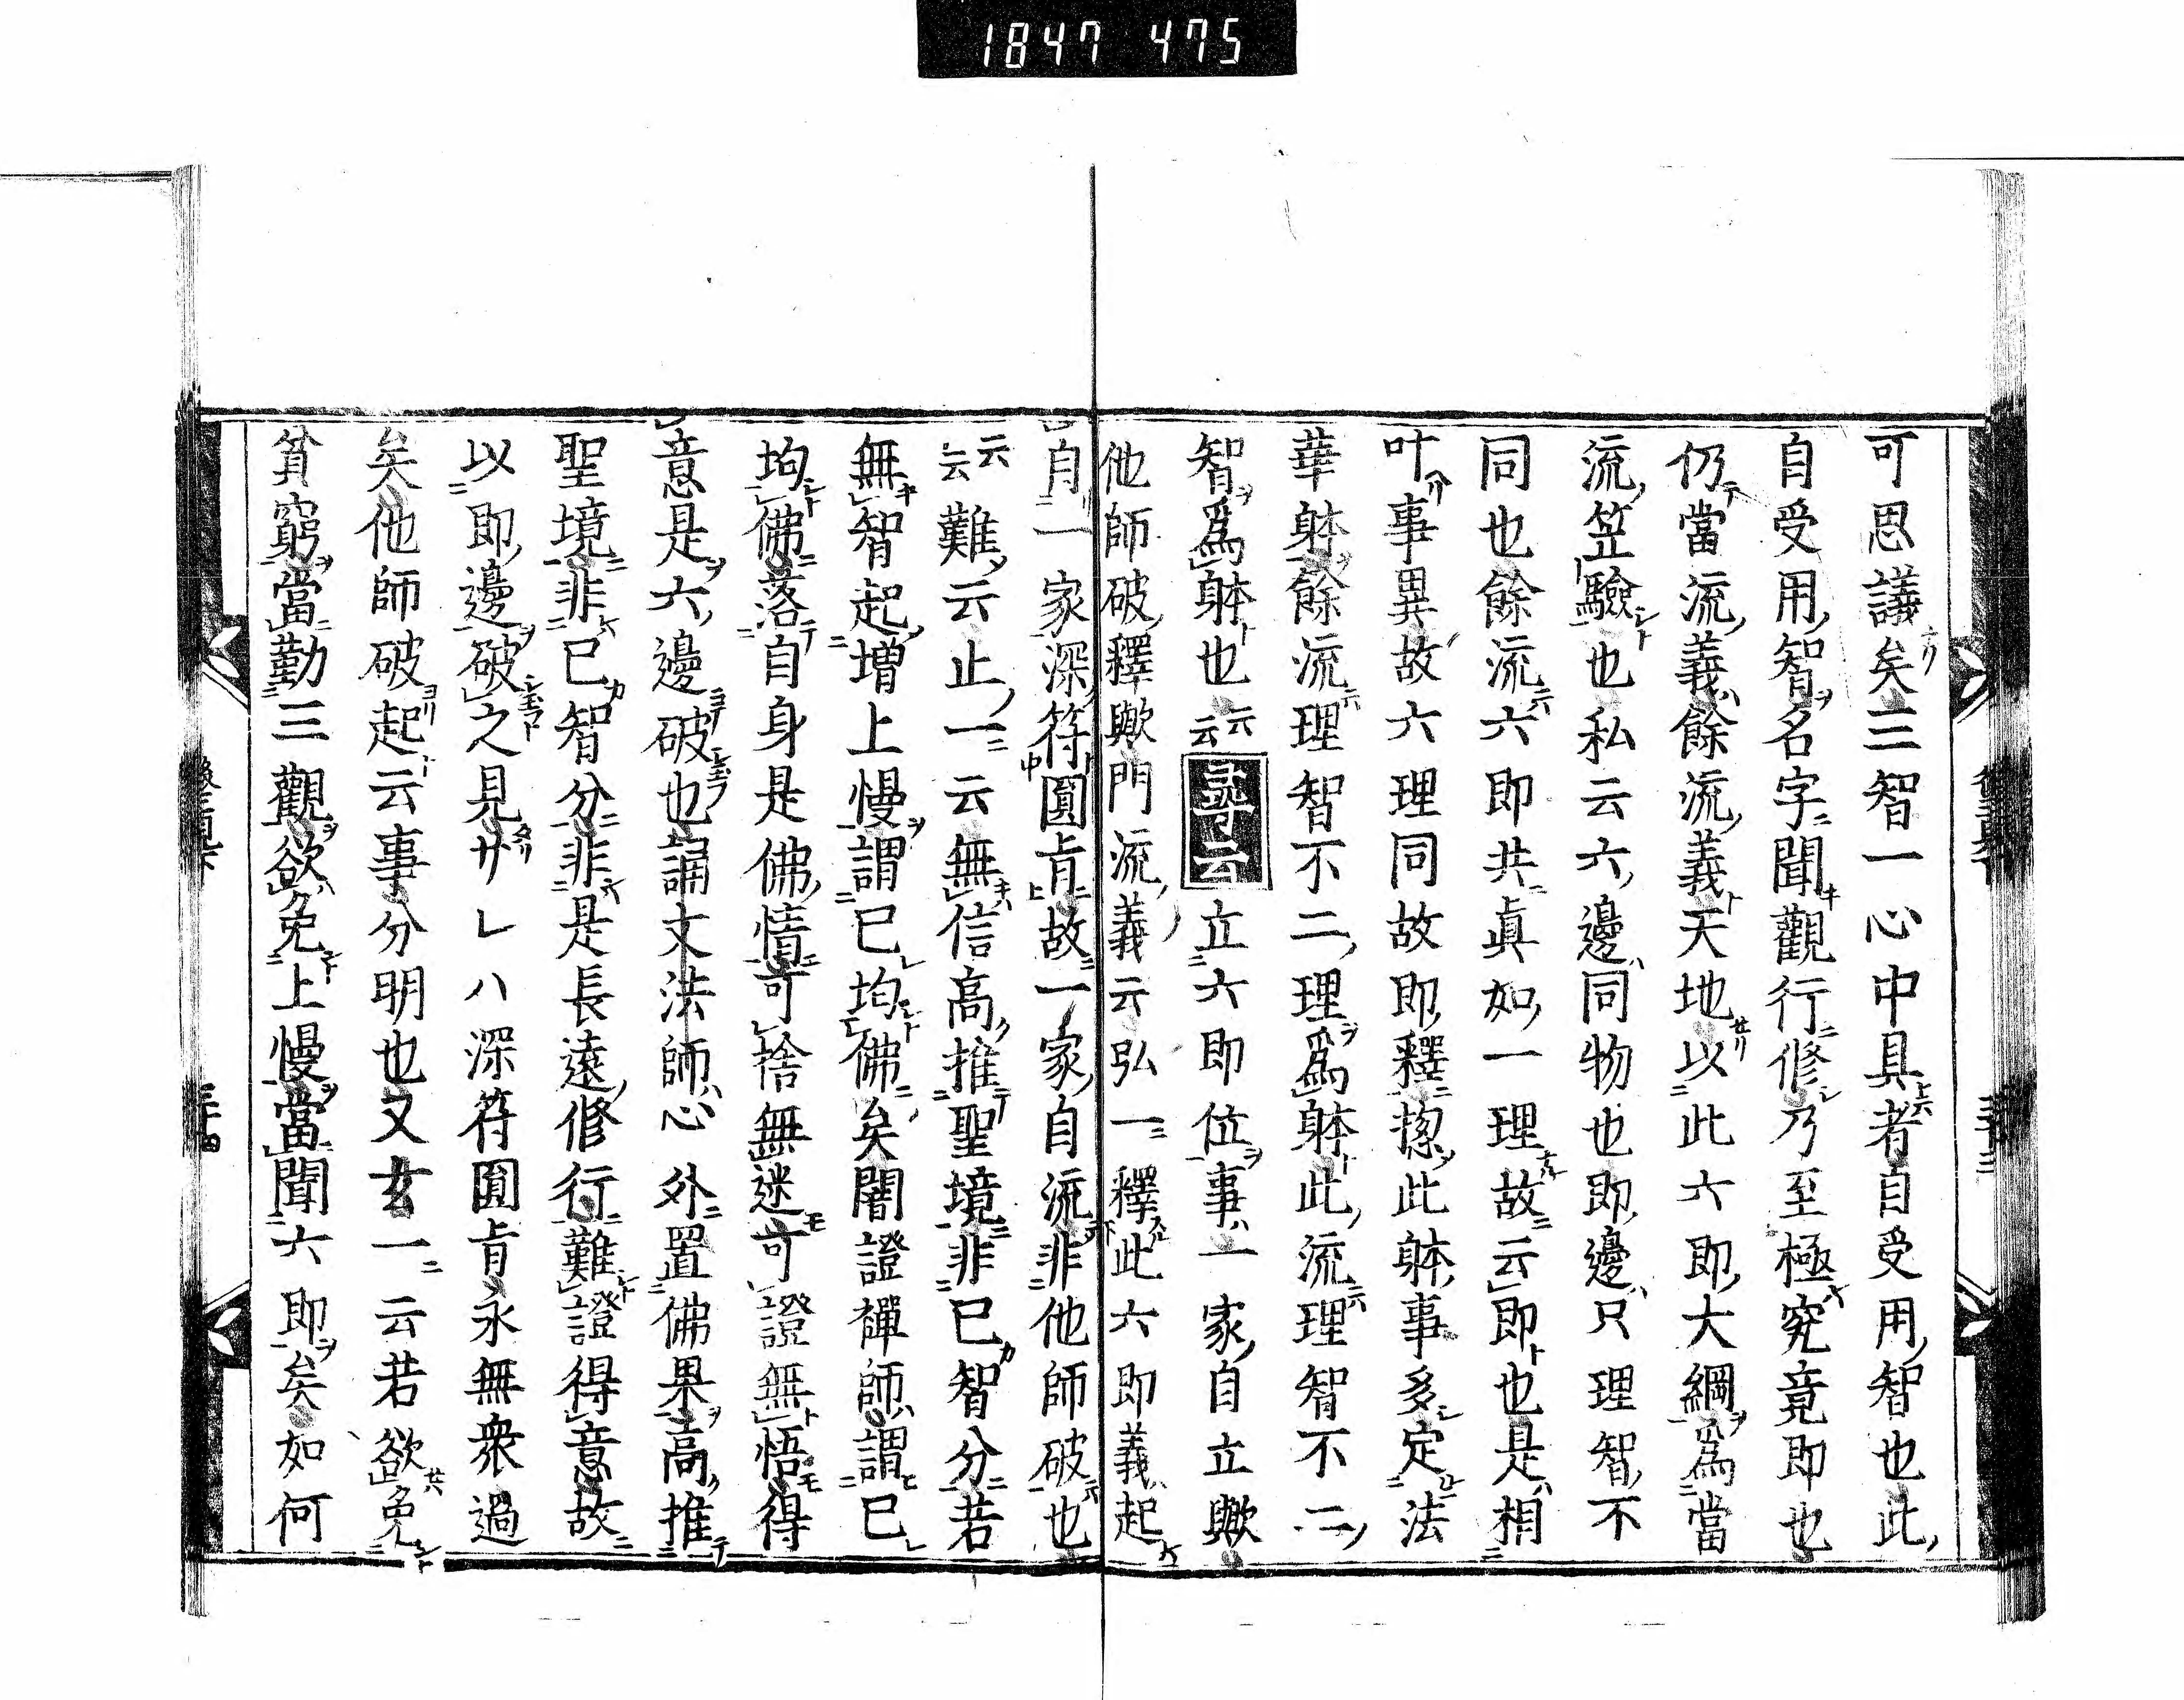 1847 475
可思議矣三智一心中具者自受用智也此
自受用智名字聞觀行修乃至極究竟即也
仍當流義餘流義天地以此六即大綱爲當
流笠驗也私云六邊同物也即邊只理智不
同也餘流六即共眞如一理故云即也是相
叶事異故六理同故即釋揔此躰事多定法
華躰餘流理智不二理爲躰此流理智不二
智爲躰也云云尋云立六即位事一家自立歟
他師破釋歟門流義云弘一釋此六即義起
自一家深符圓㫖故一家自流非他師破也
云云難云止一云無信高推聖境非己智分若
無智起增上慢謂己均佛矣闇證禪師謂己
均佛落自身是佛情可捨無迷可證無悟得
意是六邊破也誦文法師心外置佛果高推
聖境非己智分非是長遠修行難證得意故
以即邊破之見サレハ深符圓㫖永無衆過
矣他師破起云事分明也又玄一云若欲免
貧窮當勤三觀欲免上慢當聞六即矣如何